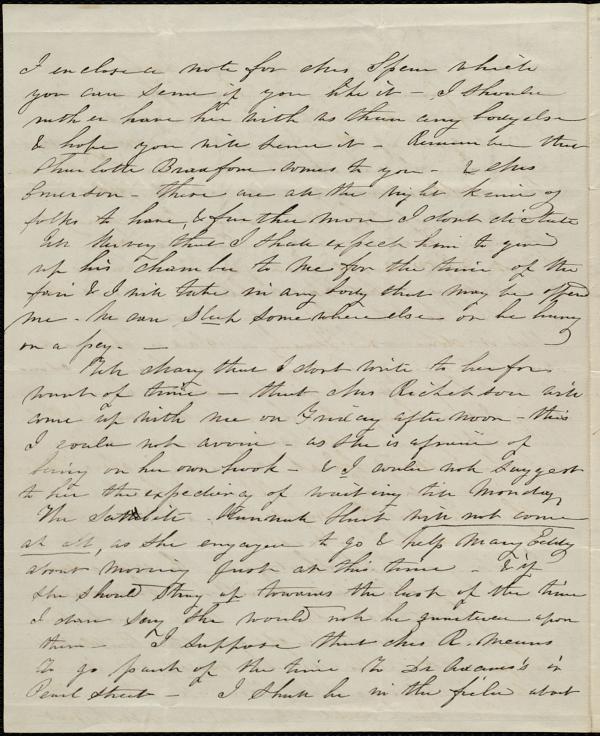 I enclose a note for Mrs Spear which
you can send if you like it - I should
rather have her with us than any body else
& hope you will send it - Remember that
Charlotte Bradford comes to you - & Mrs
Emerson - these are all the right kind of
folks to have, & further more I dont dictate
Tell Hervey that I shall expect him to give
up his Chamber to me for the time of the
fair & I will take in any body that may be offered
me - He can sleep some where else or be hung
on a peg. -
Tell Mary that I dont write to her for
want of time - that Mrs Richardson will
come up with me on Friday afternoon - this
I could not avoid - as she is afraid of
being on her own hook - & I could not suggest
to her the expediency of waiting till Monday
The Satellite Hannah will not come
at all, as she engaged to go & help Mary Eddy
about moving just at this time - & if
she should string up towards the last of the time
I dare say she would not be quartered upon
them - I suppose that Mrs R. means
to go part of the time to Dr Adams's in
Pearl Street - I shall be in the field about